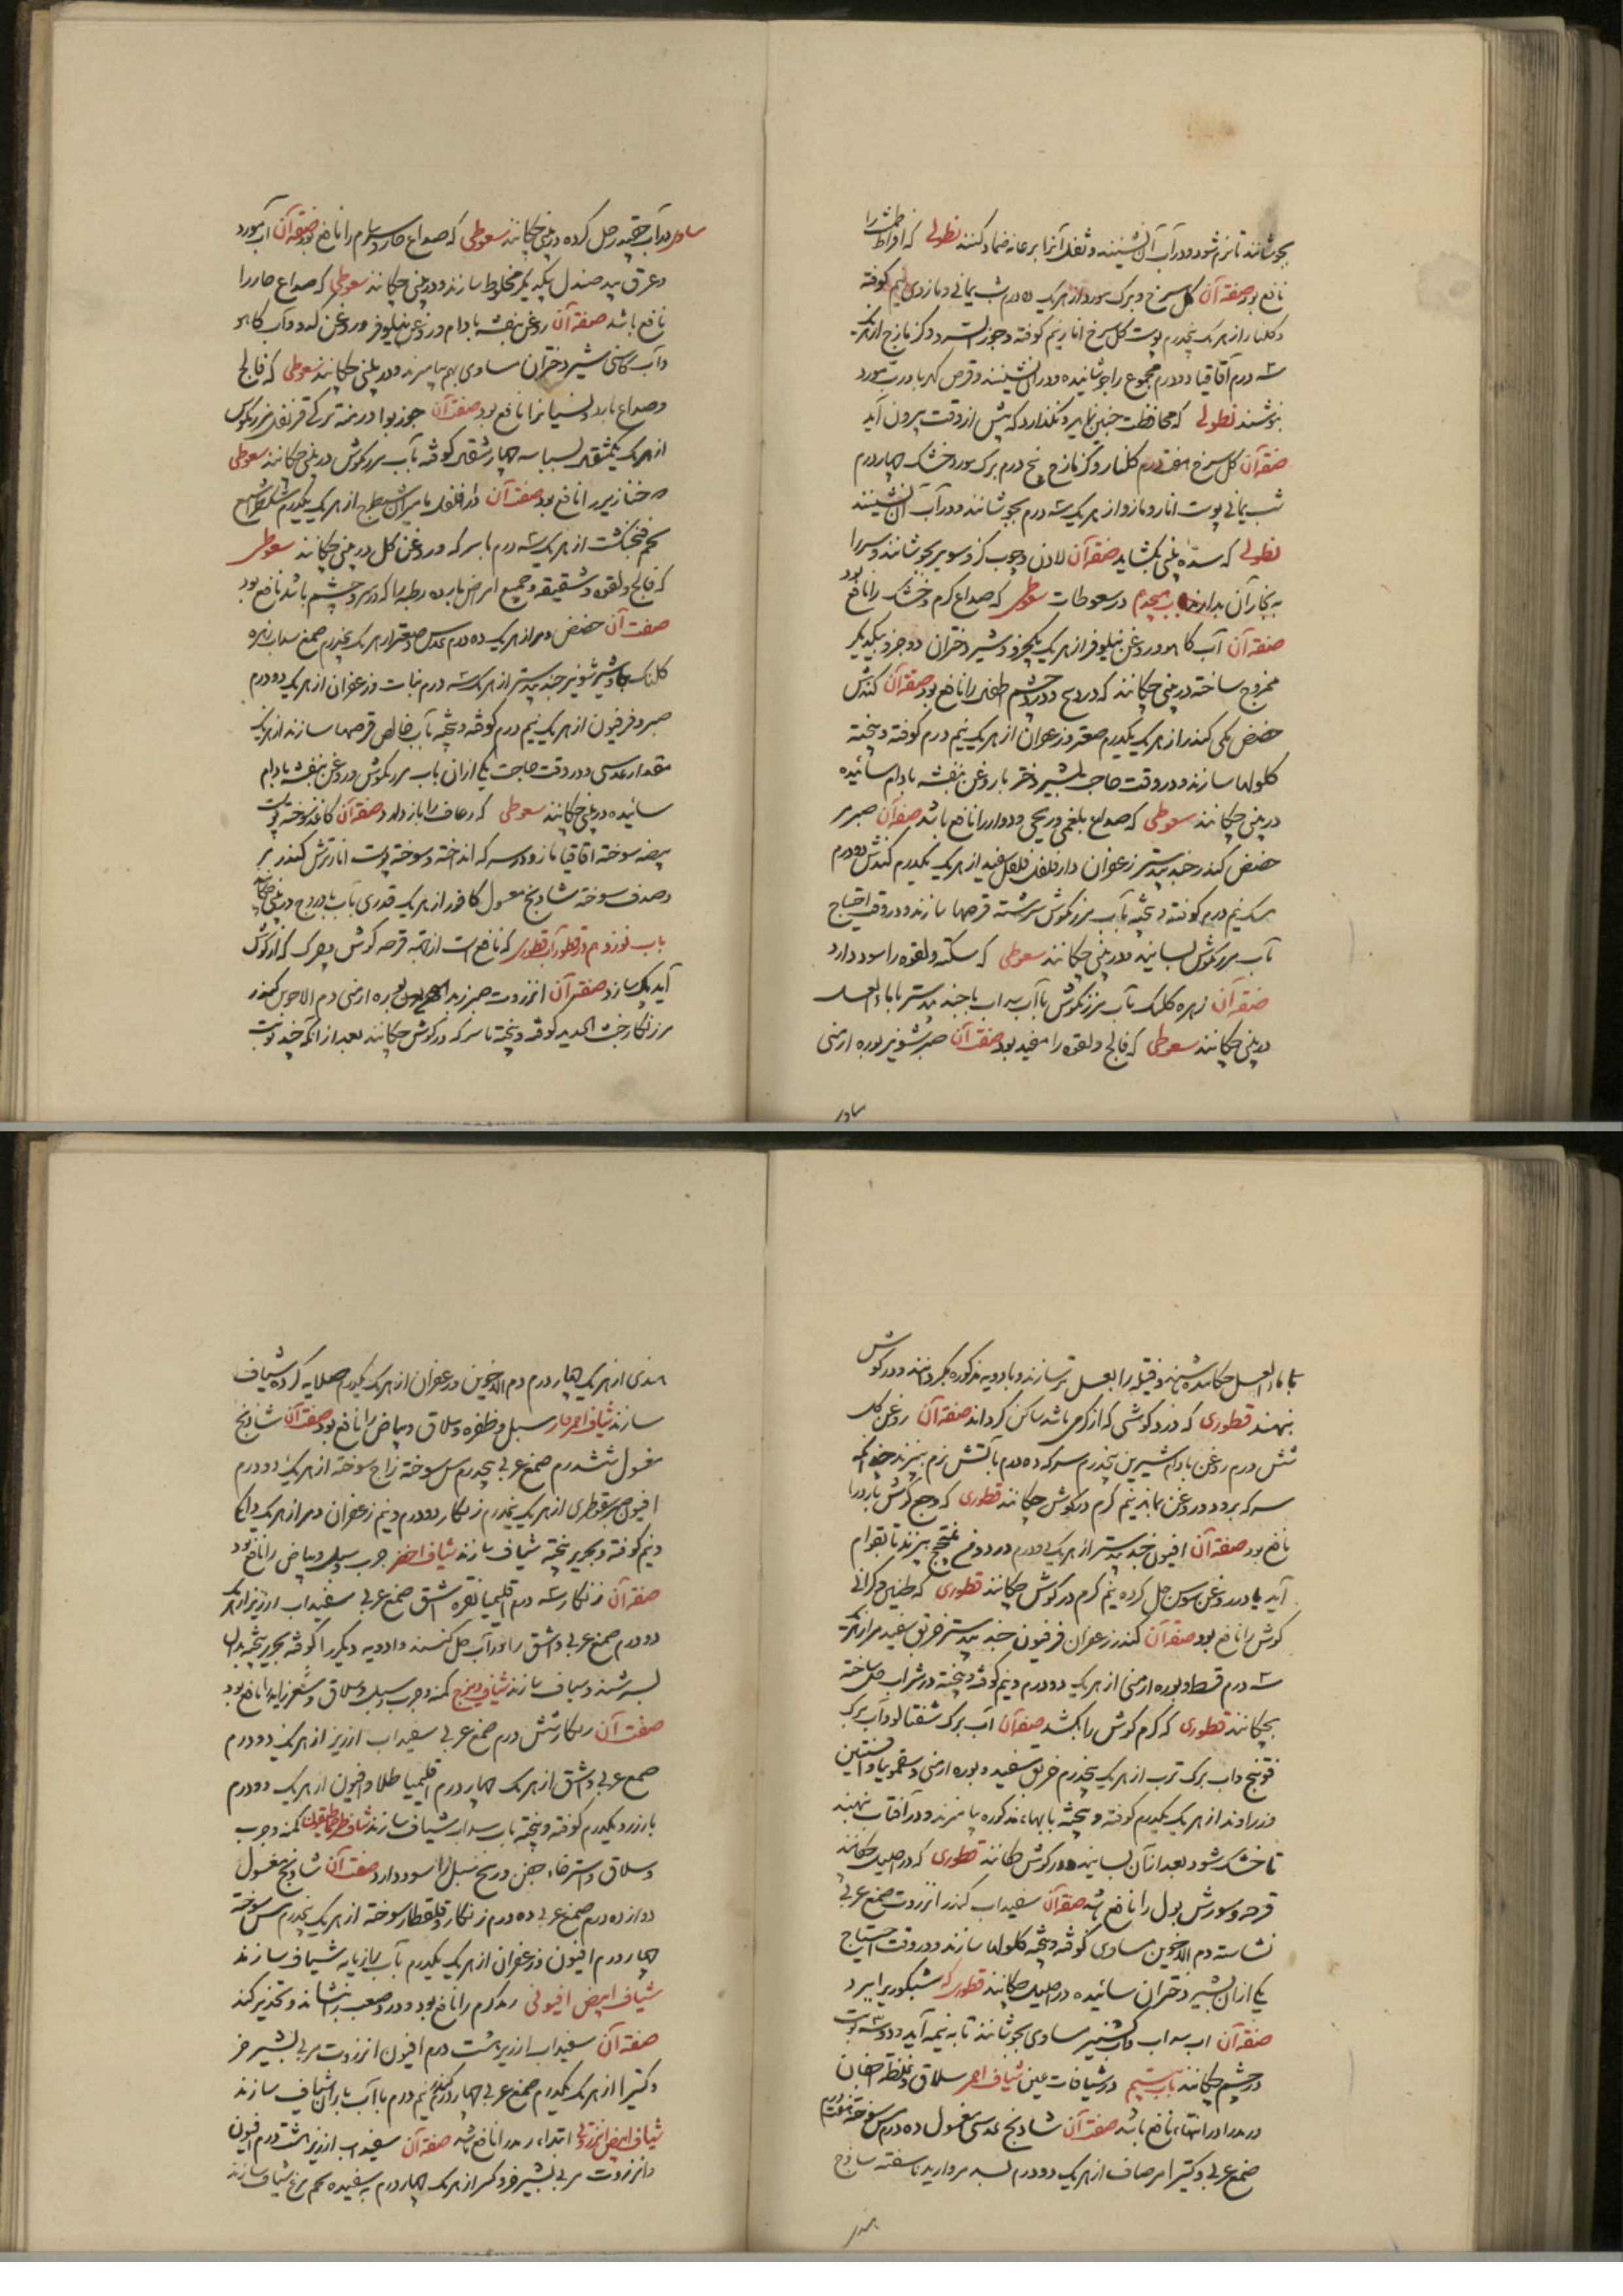 بجوشانند تا نرم شود و در آب آن نشینند و ثفل آنرا بر عانه ضماد کنند نطولی که افراط طمث را
نافع بود صفة آن گل سرخ و برگ مورد از هر یک ده درم شب یمانی و مازوی نیم کوفته
و گلنار از هر یک پنجدرم پوست انار نیم کوفته و جوز السرو و کزمازج از هر یک
سه درم آقاقیا دو درم مجموع را جوشانیده و در آن نشینند و قرص کهربا در رب مورد
بنوشند نطولی که محافظت جنین نماید و نگذارد که پیش از وقت بیرون آید
صفة آن گل سرخ هفت درم گلنار و کزمازج پنج درم برگ مورد خشک چهار درم
شب یمانی پوست انار و مازو از هر یک سه درم بجوشانند و در آب آن نشینند
نطولی که سده بینی بگشاید صفة آن لادن و چوب گز و سویر بجوشانند و سر را
به بخار آن بدارند باب هیجدهم در سعوطات سعوطی که صداع گرم و خشک را نافع بود
صفة آن آب کاهو و روغن نیلوفر از هر یک یکجزو و شیر دختران دو جزو بیکدیگر
ممزوج ساخته در بینی چکانند که درد چشم طفل را نافع بود صفة آن کندش
حضض مکی کندر از هر یک یکدرم صعتر و زعفران از هر یک نیم درم کوفته و بیخته
کلولها سازند و در وقت حاجت بشیر دختر با روغن بنفشه بادام سائیده
در بینی چکانند سعوطی که صداع بلغمی و ریحی و دوار را نافع باشد صفة آن صبر مر
حضض کندر جند بیدستر زعفران دارفلفل فلفل سفید از هر یک یکدرم کندش دو درم
مسک نیم درم کوفته و بیخته بآب مرزنگوش سرشته قرصها سازند و در وقت احتیاج
بآب مرزنگوش بسایند و در بینی چکانند سعوطی که سکته و لقوه را سود دارد
صفة آن زهره کلنک بآب مرزنگوش یا آب سداب یا جند بیدستر یا ماء العسل
در بینی چکانند سعوطی که فالج و لقوه را مفید بود صفة آن صبر شونیز بوره ارمنی
ساور در آب چقندر حل کرده در بینی چکانند سعوطی که صداع حار و سرسام را نافع بود صفة آن آب مورد
و عرق بید صندل بیکدیگر مخلوط سازند و در بینی چکانند سعوطی که صداع حار را
نافع باشد صفة آن روغن بنفشه بادام و روغن نیلوفر و روغن کدو و آب کاهو
و آب کاسنی شیر دختران مساوی بهم بیامیزند و در بینی چکانند سعوطی که فالج
و صداع بارد و نسیان را نافع بود صفة آن جوز بوا درمنه ترکی قرنفل مرزنگوش
از هر یک یکمثقال بسباسه چهار مثقال کوفته بآب مرزنگوش در بینی چکانند سعوطی
که خنازیر را نافع بود صفة آن دارفلفل مامیران شیطرج از هر یک یکدرم
تخم فنجنکشت از هر یک سه درم با سرکه و روغن گل در بینی چکانند سعوطی
که فالج و لقوه و شقیقه و جمیع امراض بارده رطبه را که در سر و چشم باشد نافع بود
صفة آن حضض و مر از هر یک ده درم عدس و صعتر از هر یک پنجدرم صمغ سداب زهره
کلنک جاوشیر شونیز جند بیدستر از هر یک سه درم نبات و زعفران از هر یک دو درم
صبر و فرفیون از هر یک نیم درم کوفته و بیخته بآب خالص قرصها سازند از هر یک
مقدار عدسی و در وقت حاجت یکی از آن بآب مرزنگوش و روغن بنفشه بادام
سائیده در بینی چکانند سعوطی که رعاف را باز دارد صفة آن کاغذ سوخته پوست
بیضه سوخته آقاقیا مازو در سرکه انداخته و سوخته پوست انار ترش کندر
و صدف سوخته شادنج مغسول کافور از هر یک قدری بآب بادروج در بینی چکانند
باب نوزدهم در قطورات قطوری که نافع است از جمیع قرحه گوش و چرک که از گوش
آید پاک سازد صفة آن انزروت صبر زبد البحر بوره ارمنی دم الاخوین کندر
مر زنگار خبث الحدید کوفته و بیخته با سرکه در گوش چکانند بعد از آنکه چند نوبت
با ماء العسل چکانیده باشند و فتیله را بعسل تر سازند و بادویه مذکوره بگردانند و در گوش
نهند قطوری که درد گوشی که از گرمی باشد ساکن گرداند صفة آن روغن گل
شش درم روغن بادام شیرین پنجدرم سرکه ده درم بآتش نرم بپزند چندانکه
سرکه برود و روغن بماند نیم گرم در گوش چکانند قطوری که وجع گوش بارد را
نافع بود صفة آن افیون جند بیدستر از هر یک دو درم در دوغ بپزند تا بقوام
آید یا در روغن سوسن حل کرده نیم گرم در گوش چکانند قطوری که طنین و گرانی
گوش را نافع بود صفة آن کندر زعفران فرفیون جند بیدستر خربق سفید مر از هر یک
سه درم قسط و بوره ارمنی از هر یک دو درم و نیم کوفته و بیخته در شراب حل ساخته
بچکانند قطوری که کرم گوش را بکشد صفة آن آب برگ شفتالو و آب برگ
فوتنج و آب برگ ترب از هر یک پنجدرم خربق سفید و بوره ارمنی و سقمونیا و افسنتین
و زراوند از هر یک یکدرم کوفته و بیخته بآبهای مذکوره بیامیزند و در آفتاب نهند
تا خشک شود بعد از آن بسایند و در گوش چکانند قطوری که در احلیل چکانند
قرحه و سوزش بول را نافع باشد صفة آن سفیداب کندر انزروت صمغ عربی
نشاسته دم الاخوین مساوی کوفته و بیخته کلولها سازند و در وقت احتیاج
یکی از آن بشیر دختران سائیده در احلیل چکانند قطوری که شبکوری ببرد
صفة آن آب سداب و آب گشنیز مساوی بجوشانند تا به نیمه آید و دو سه نوبت
در چشم چکانند باب بیستم در شیافات عین شیاف احمر سلاق و غلظ اجفان
و رمد را در انتهاء نافع باشد صفة آن شادنج عدسی مغسول ده درم مس سوخته هفت درم
صمغ عربی و کتیرا مر صاف از هر یک دو درم بسد مروارید ناسفته ساذج
هندی از هر یک چهار درم دم الاخوین و زعفران از هر یک یکدرم صلایه کرده شیاف
سازند شیاف احمر حاد سبل و ظفره و سلاق و بیاض را نافع بود صفة آن شادنج
مغسول شش درم صمغ عربی پنجدرم مس سوخته زاج سوخته از هر یک دو درم
افیون صبر سقوطری از هر یک نیم درم زنگار دو درم و نیم زعفران و مر از هر یک دانکی
و نیم کوفته و بحریر بیخته شیاف سازند شیاف اخضر جرب و سبل و بیاض را نافع بود
صفة آن زنگار سه درم اقلیمیا نقره اشق صمغ عربی سفیداب ارزیز از هر یک
دو درم صمغ عربی و اشق را در آب حل کنند و ادویه دیگر را کوفته بحریر بیخته بدان
بسرشند و شیاف سازند شیاف کمنه و جرب و سبل و سلاق و شعر زاید را نافع بود
صفة آن زنگار شش درم صمغ عربی سفیداب ارزیز از هر یک دو درم
صمغ عربی و اشق از هر یک چهار درم اقلیمیا طلا و افیون از هر یک دو درم
بارزد یکدرم کوفته و بیخته بآب سداب شیاف سازند شیاف طرخماطیقون کمنه و جرب
و سلاق و استرخاء جفن و ریح سبل را سود دارد صفة آن شادنج مغسول
دوازده درم صمغ عربی ده درم زنگار و قلقطار سوخته از هر یک پنجدرم مس سوخته
چهار درم افیون و زعفران از هر یک یکدرم بآب رازیانه شیاف سازند
شیاف ابیض افیونی رمد گرم را نافع بود و درد صعب را بنشاند و تخدیر کند
صفة آن سفیداب ارزیز هشت درم افیون انزروت مربی بشیر خر
و کتیرا از هر یک یکدرم صمغ عربی چهار درم کندر نیم درم با آب باران شیاف سازند
شیاف ابیض انزروتی ابتداء رمد را نافع باشد صفة آن سفیداب ارزیز هشت درم افیون
و انزروت مربی بشیر خر و کندر از هر یک چهار درم به سفیده تخم مرغ شیاف سازند